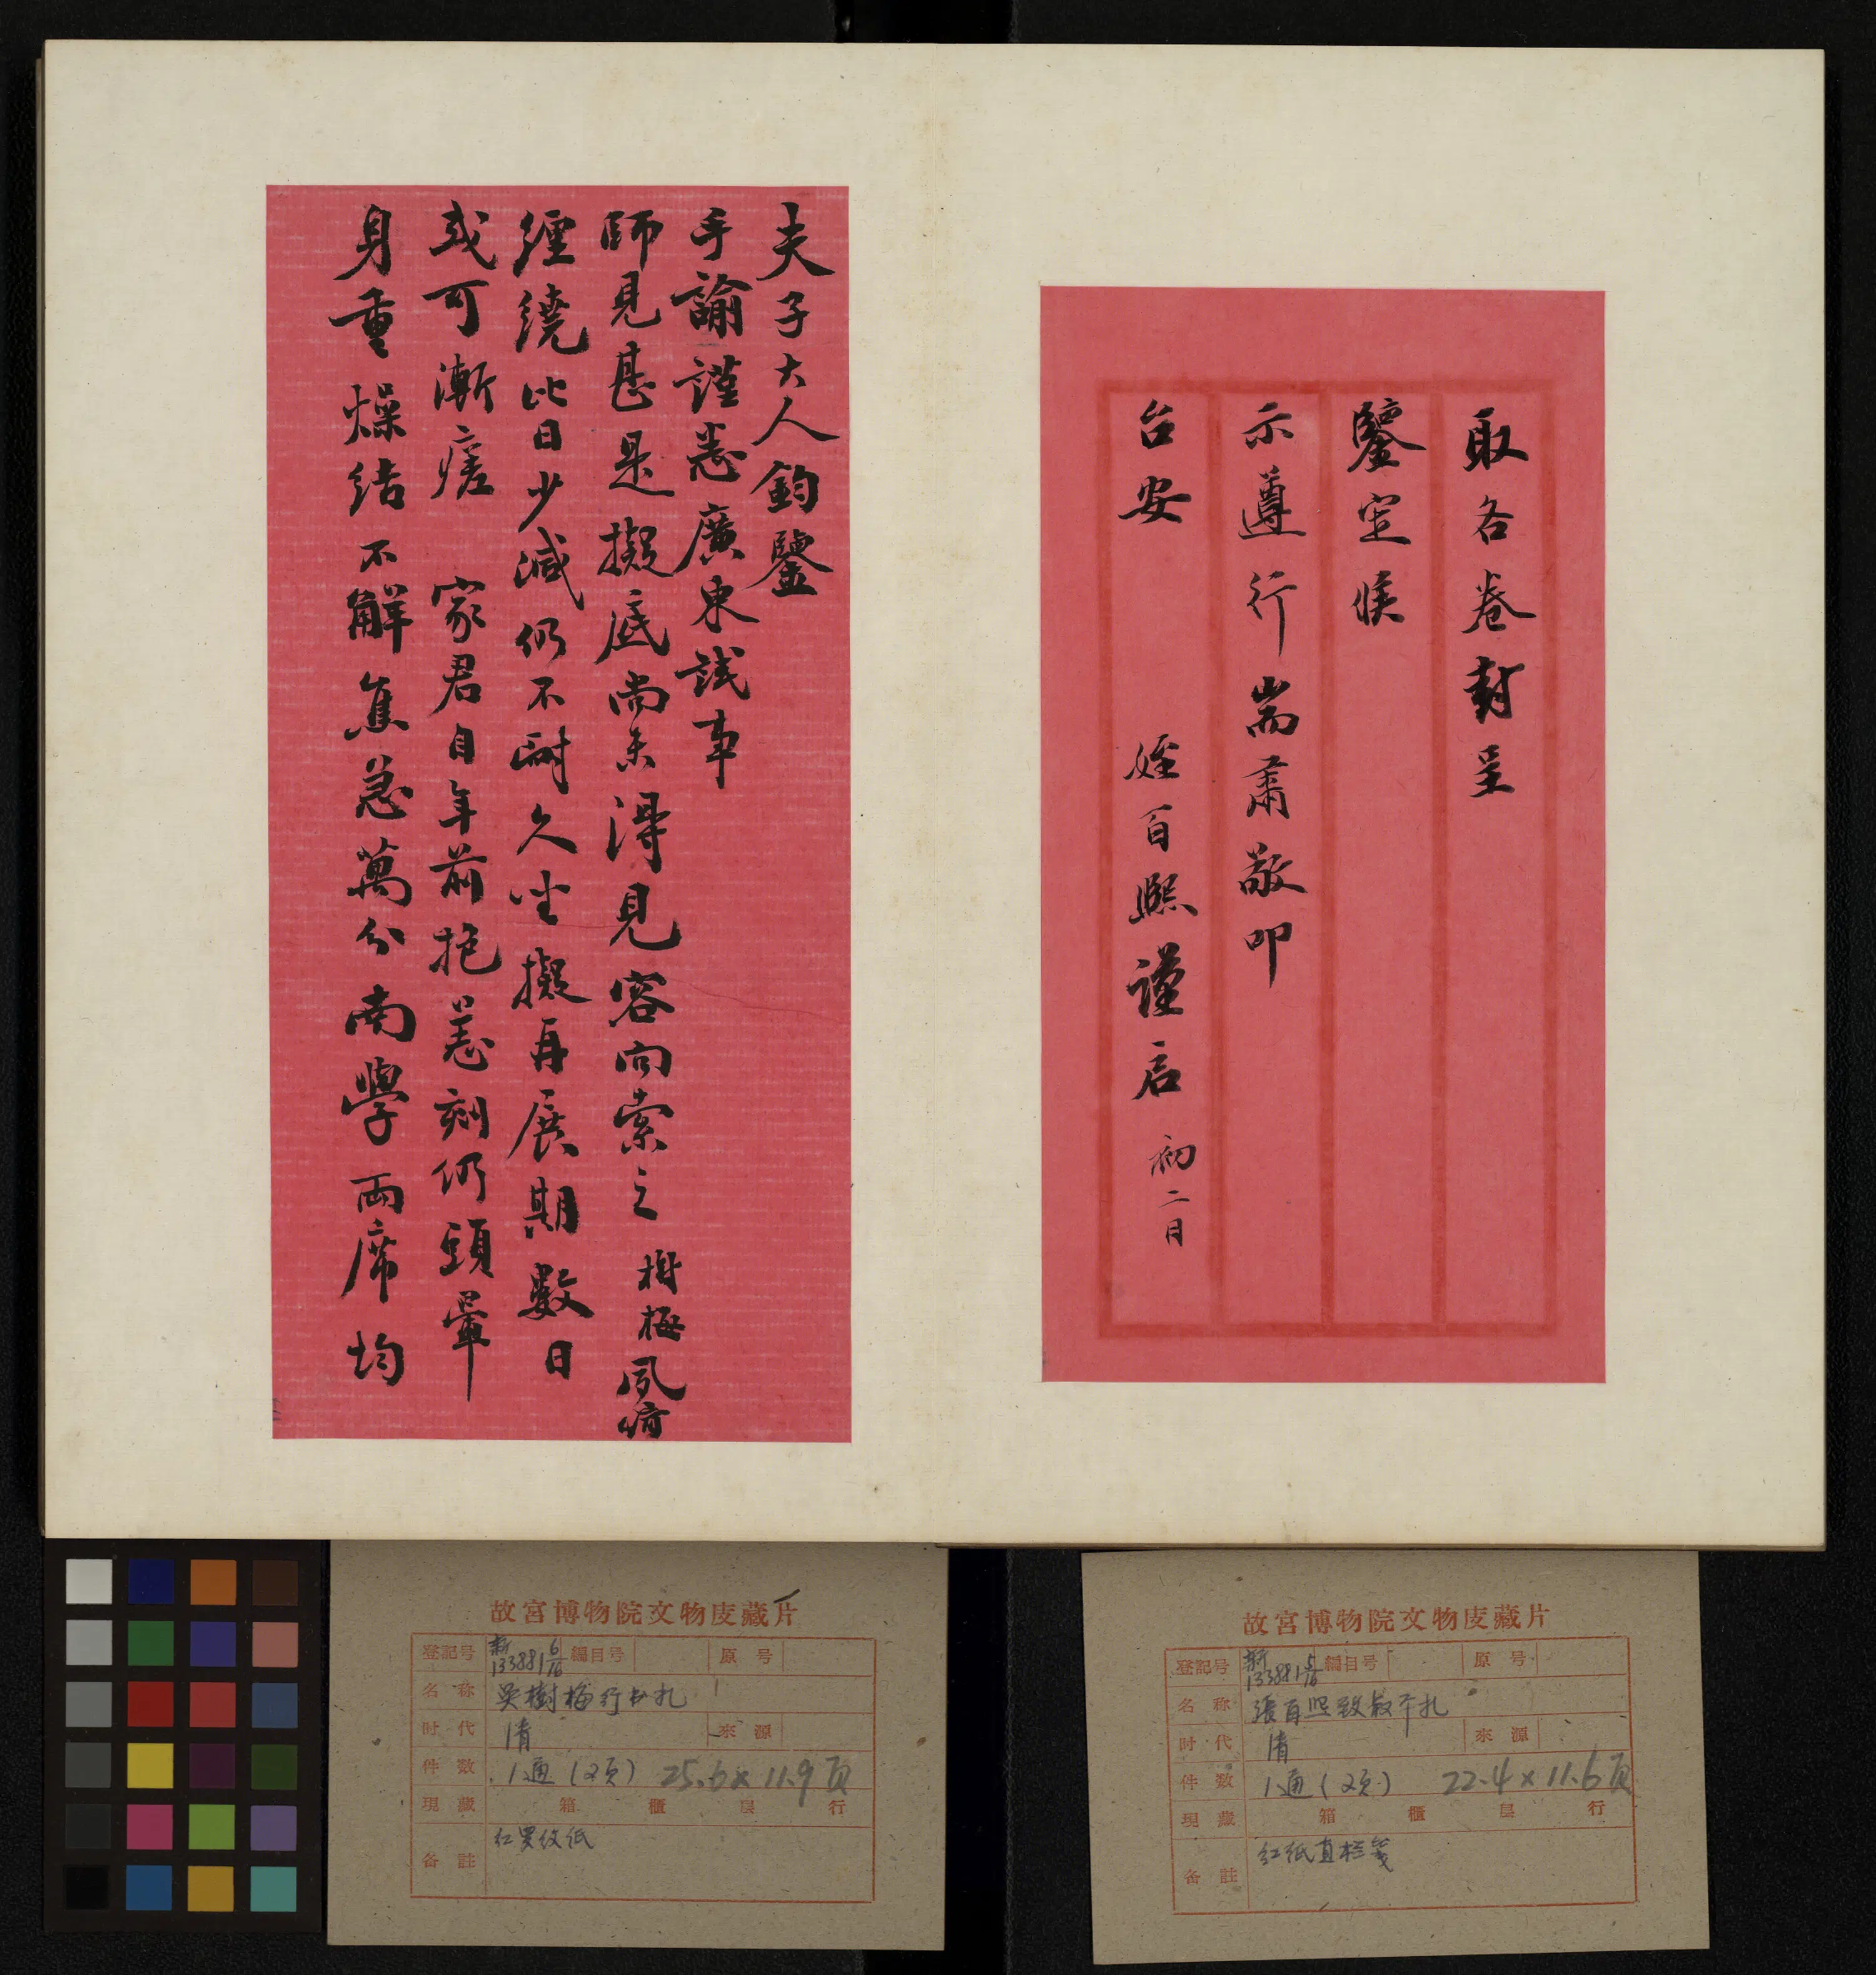 取各卷封呈
鑒定候
示遵行耑肅敬叩
台安 姪百熙謹启 初二日
夫子大人鈞鑒
手諭謹悉廣東試事
師見甚是擬底尚未得見容向索之樹梅夙疴
纏繞比日少減仍不耐久坐擬再展期數日
或可漸瘥 家君自年前抱恙刻仍頭暈
身重燥结不解焦急萬分南學両席均
故宮博物院文物庋藏片
登記号 新133881 5/16 編目号 原号
名称 張百熙致叔平札
时代 清 來源
件数 1通(2页) 22.4×11.6页
現藏 箱 櫃 层 行
备註 红纸直栏笺
故宮博物院文物庋藏片
登記号 新133881 6/16 編目号 原号
名称 吴樹梅行书札
时代 清 來源
件数 1通(2页) 25.6×11.9页
現藏 箱 櫃 层 行
备註 红罗纹纸